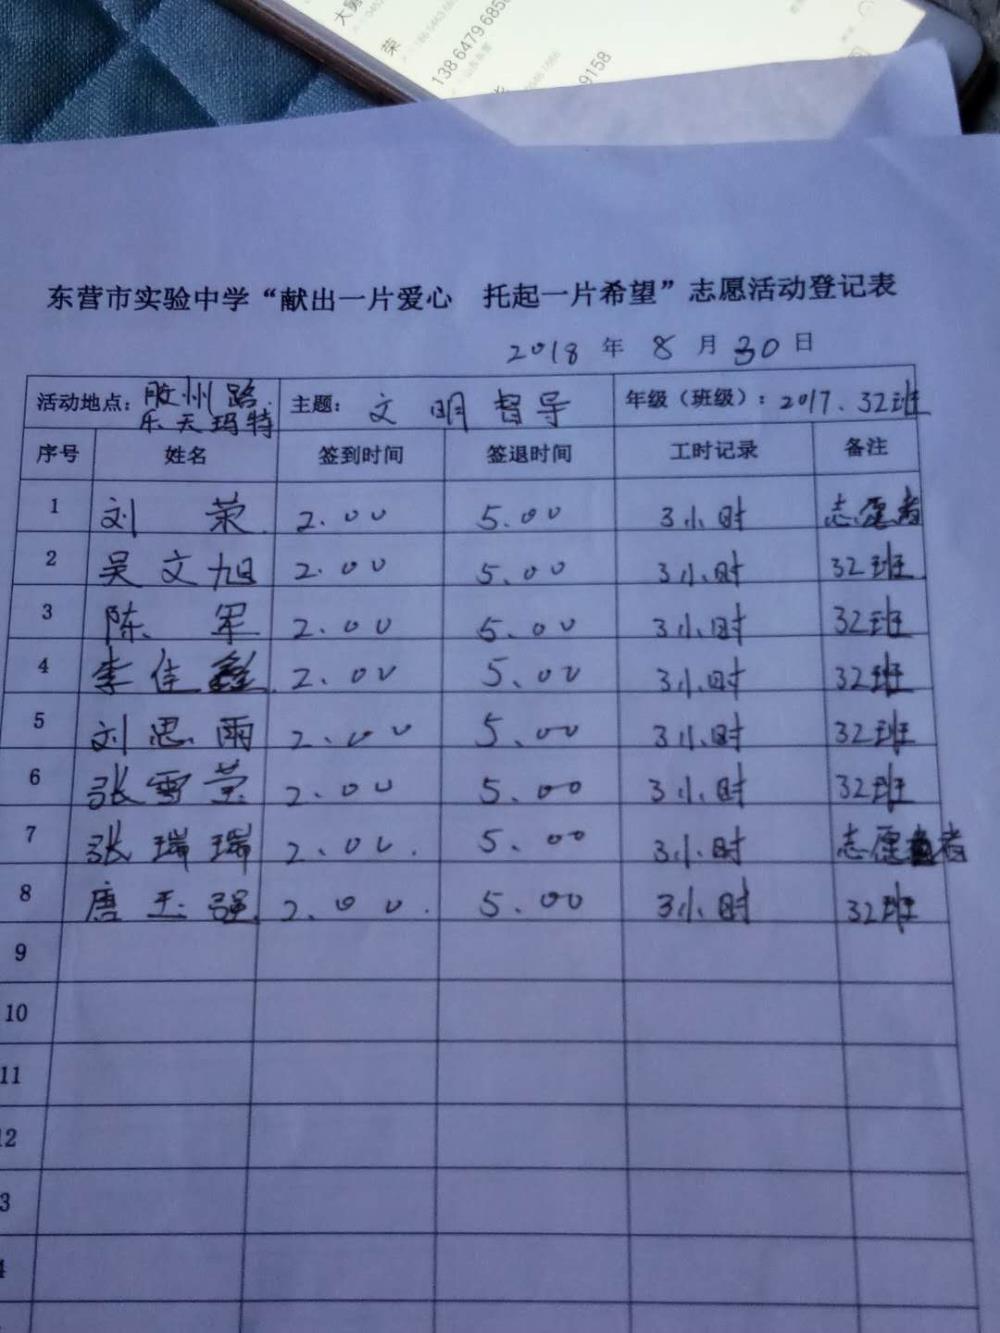 大舅
荣
138 6479 685
9158
东营市实验中学“献出一片爱心 托起一片希望”志愿活动登记表
2018 年 8 月 30 日
活动地点: 胶州路 乐天玛特 主题: 文明督导 年级（班级）: 2017.32班
序号 姓名 签到时间 签退时间 工时记录 备注
1 刘荣 2.00 5.00 3小时 志愿者
2 吴文旭 2.00 5.00 3小时 32班
3 陈军 2.00 5.00 3小时 32班
4 李佳鑫 2.00 5.00 3小时 32班
5 刘思雨 2.00 5.00 3小时 32班
6 张雪莹 2.00 5.00 3小时 32班
7 张瑞瑞 2.00 5.00 3小时 志愿者
8 唐玉强 2.00 5.00 3小时 32班
9
10
11
12
3
4